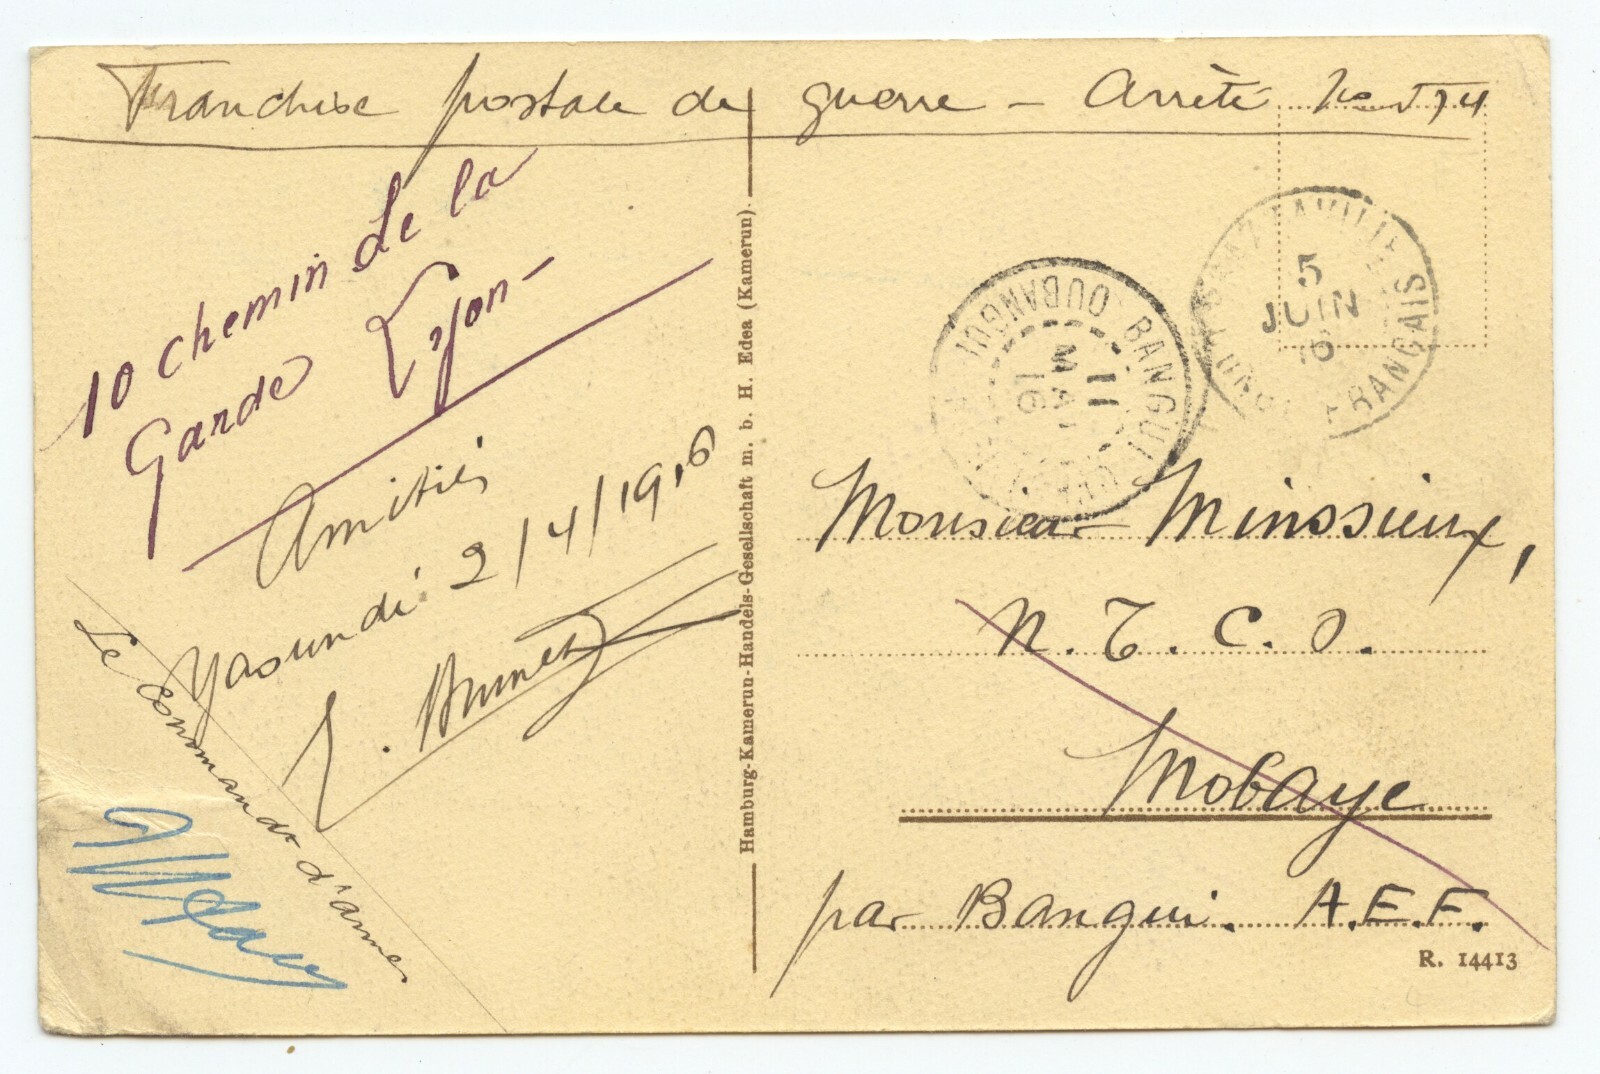 Franchise postale de guerre – Arrêté No 574
10 chemin de la
Garde Lyon –
Amitiés
Yaoundé 2/4/1916
Le Commandt d'armes
Hamburg-Kamerun-Handels-Gesellschaft m. b. H. Edea (Kamerun).
BANGUI OUBANGUI
11
MAI
16
BRAZZAVILLE
CONGO FRANÇAIS
5
JUIN
16
Monsieur Minssieux,
N. T. C. O.
Mobaye
par Bangui. A.E.F.
R. 14413